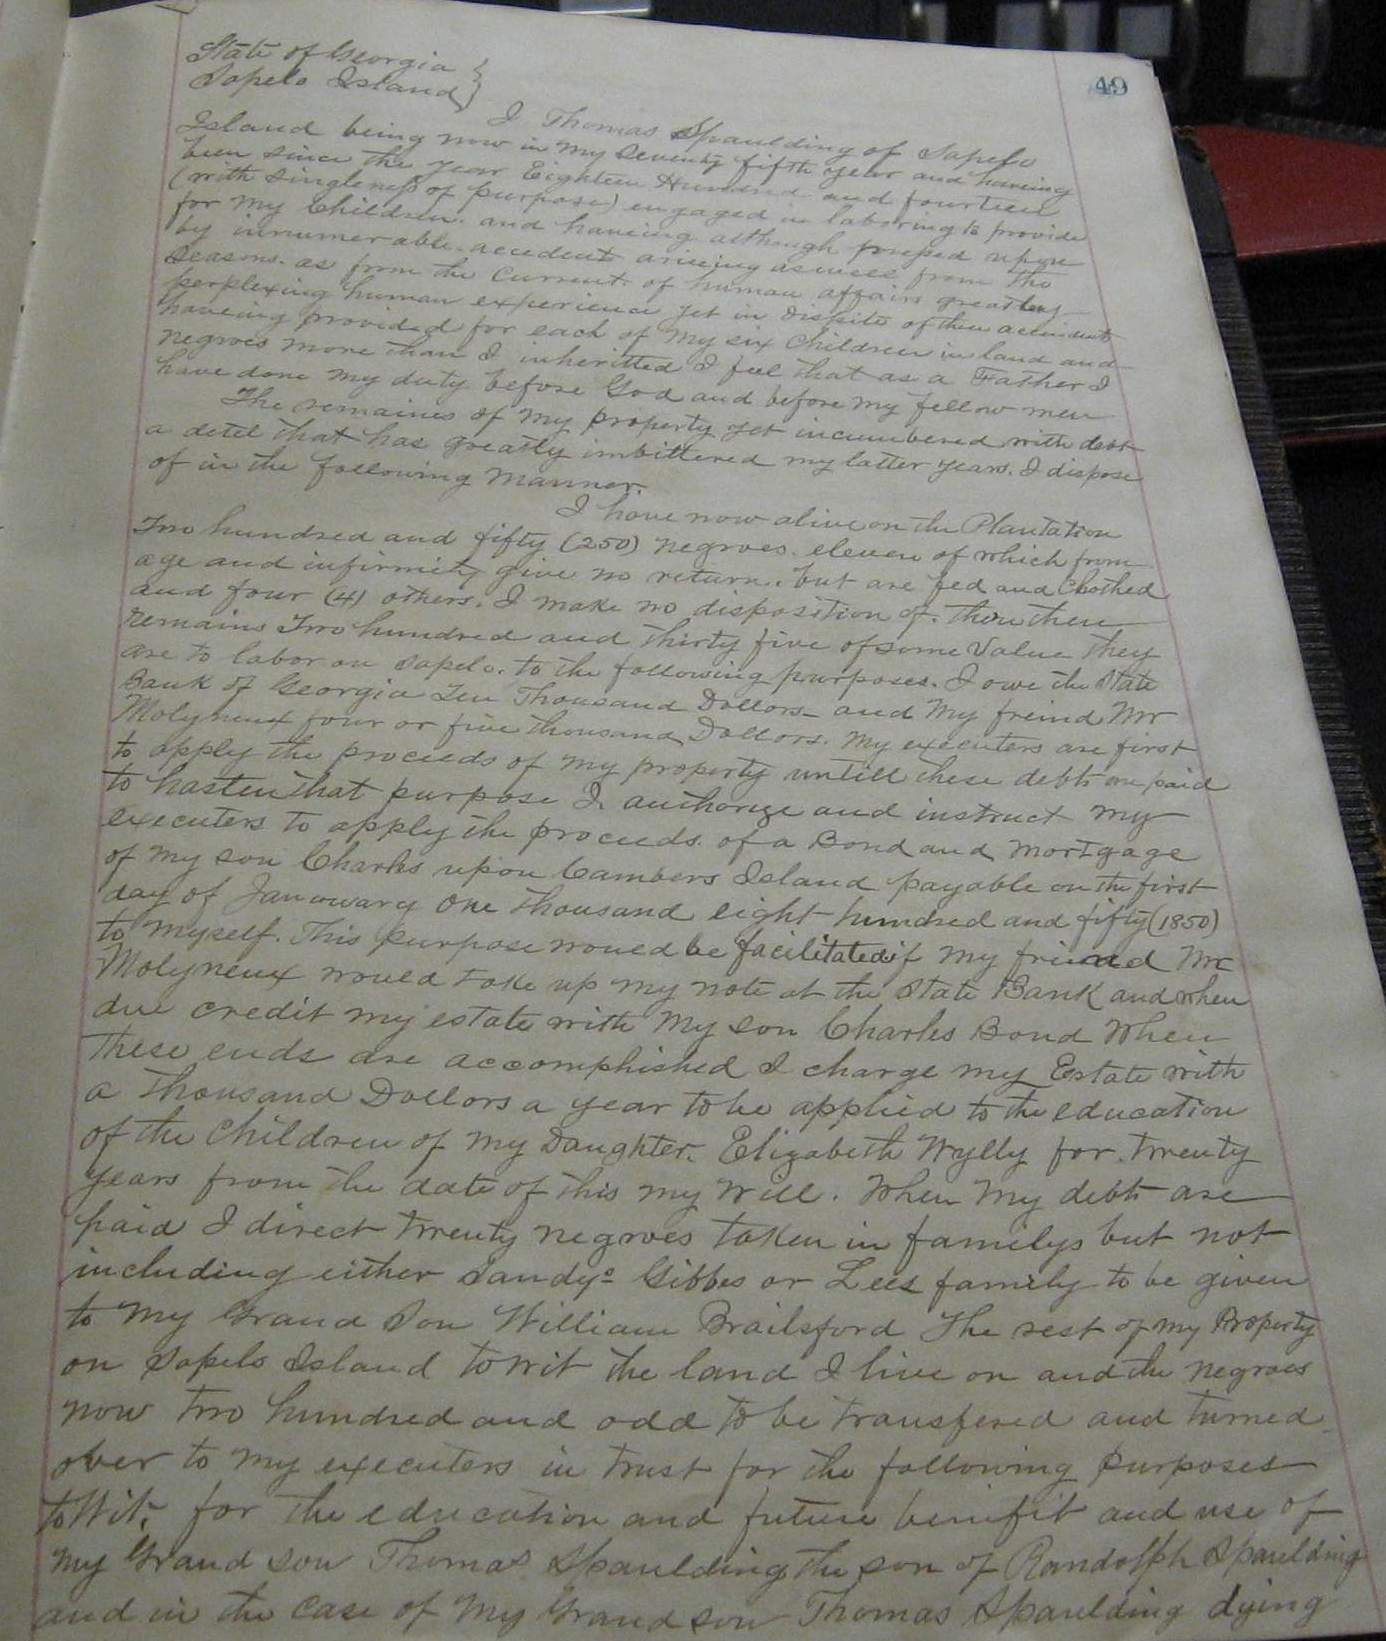 49
State of Georgia }
Sapelo Island }
I Thomas Spaulding of Sapelo
Island being now in my seventy fifth year and haveing
been since the year Eighteen Hundred and fourteen
(with singleness of purpose) engaged in laboring to provide
for my Children. and haveing although pressed upon
by innumerable accedents ariseing as well from the
Seasons. as from the Current of human affairs greatley
perplexing human experience yet in dispite of these accidents
haveing provided for each of my six Children in land and
negroes more than I inheritted I feel that as a Father I
have done my duty before God and before my fellow men
The remaines of my property yet incumbered with debt
a detel that has greatly imbittered my latter years. I dispose
of in the following manner.
I have now alive on the Plantation
Two hundred and fifty (250) negroes. eleven of which from
age and infirmity give no return. but are fed and Clothed
and four (4) others. I make no disposition of. then
remains Two hundred and thirty five of some Value they
are to labor on Sapelo. to the following purposes. I owe the State
Bank of Georgia Ten Thousand Dollors- and my freind Mr
Molyneux four or five thousand Dollors. my executers are first
to apply the proceeds of my property untill these debts are paid
to hasten that purpose I authorize and instruct my
executers to apply the proceeds. of a Bond and Mortgage
of my son Charles upon Cambers Island payable on the first
day of Januwary One thousand eight hundred and fifty (1850)
to myself. This purpose would be facilitated if my friend Mr
Molyneux would take up my note at the State Bank and when
due credit my estate with my son Charles Bond When
these ends are accomphished I charge my Estate with
a thousand Doelors a year to be applied to the education
of the Children of my Daughter. Elizabeth Wylly for twenty
years from the date of this my Will. When my debts are
paid I direct twenty negroes taken in familys but not
including either Sandys Gibbes or Lees family to be given
to my Grand Son William Brailsford The rest of my Property
on Sapelo Island to wit the land I live on and the negroes
now two hundred and odd to be transfered and turned
over to my executers in trust for the following purposes
to Wit, for the education and future benifit and use of
my Grand son Thomas Spaulding the son of Randolph Spaulding
and in the case of my Grand son Thomas Spaulding dying